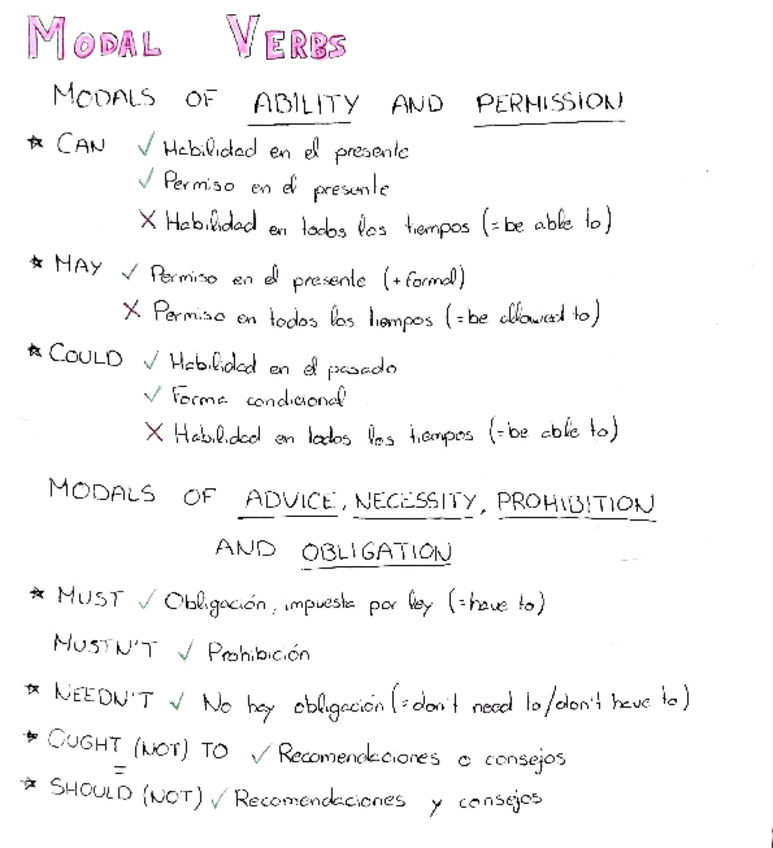 MODAL VERBS
MODALS OF ABILITY AND PERMISSION
☆ CAN ✓ Habilidad en el presente
✓ Permiso en el presente
X Habilidad en todos los tiempos (=be able to)
☆ MAY ✓ Permiso en el presente (+formal)
X Permiso en todos los tiempos (=be allowed to)
☆ COULD ✓ Habilidad en el pasado
✓ Forma condicional
X Habilidad en todos los tiempos (=be able to)
MODALS OF ADVICE, NECESSITY, PROHIBITION
AND OBLIGATION
☆ MUST ✓ Obligación, impuesta por ley (=have to)
MUSTN'T ✓ Prohibición
☆ NEEDN'T ✓ No hay obligación (=don't need to/don't have to)
☆ OUGHT (NOT) TO ✓ Recomendaciones o consejos
=
☆ SHOULD (NOT) ✓ Recomendaciones y consejos